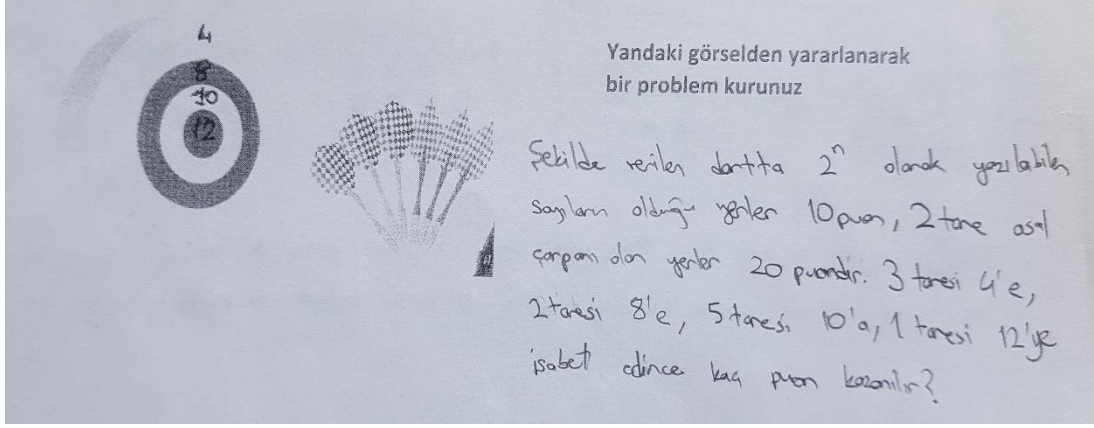 4
8
10
12
Yandaki görselden yararlanarak
bir problem kurunuz
Şekilde verilen dartta 2ⁿ olarak yazılabilen
sayıların olduğu yerler 10 puan, 2 tane asal
çarpanı olan yerler 20 puandır. 3 tanesi 4'e,
2 tanesi 8'e, 5 tanesi 10'a, 1 tanesi 12'ye
isabet edince kaç puan kazanılır?